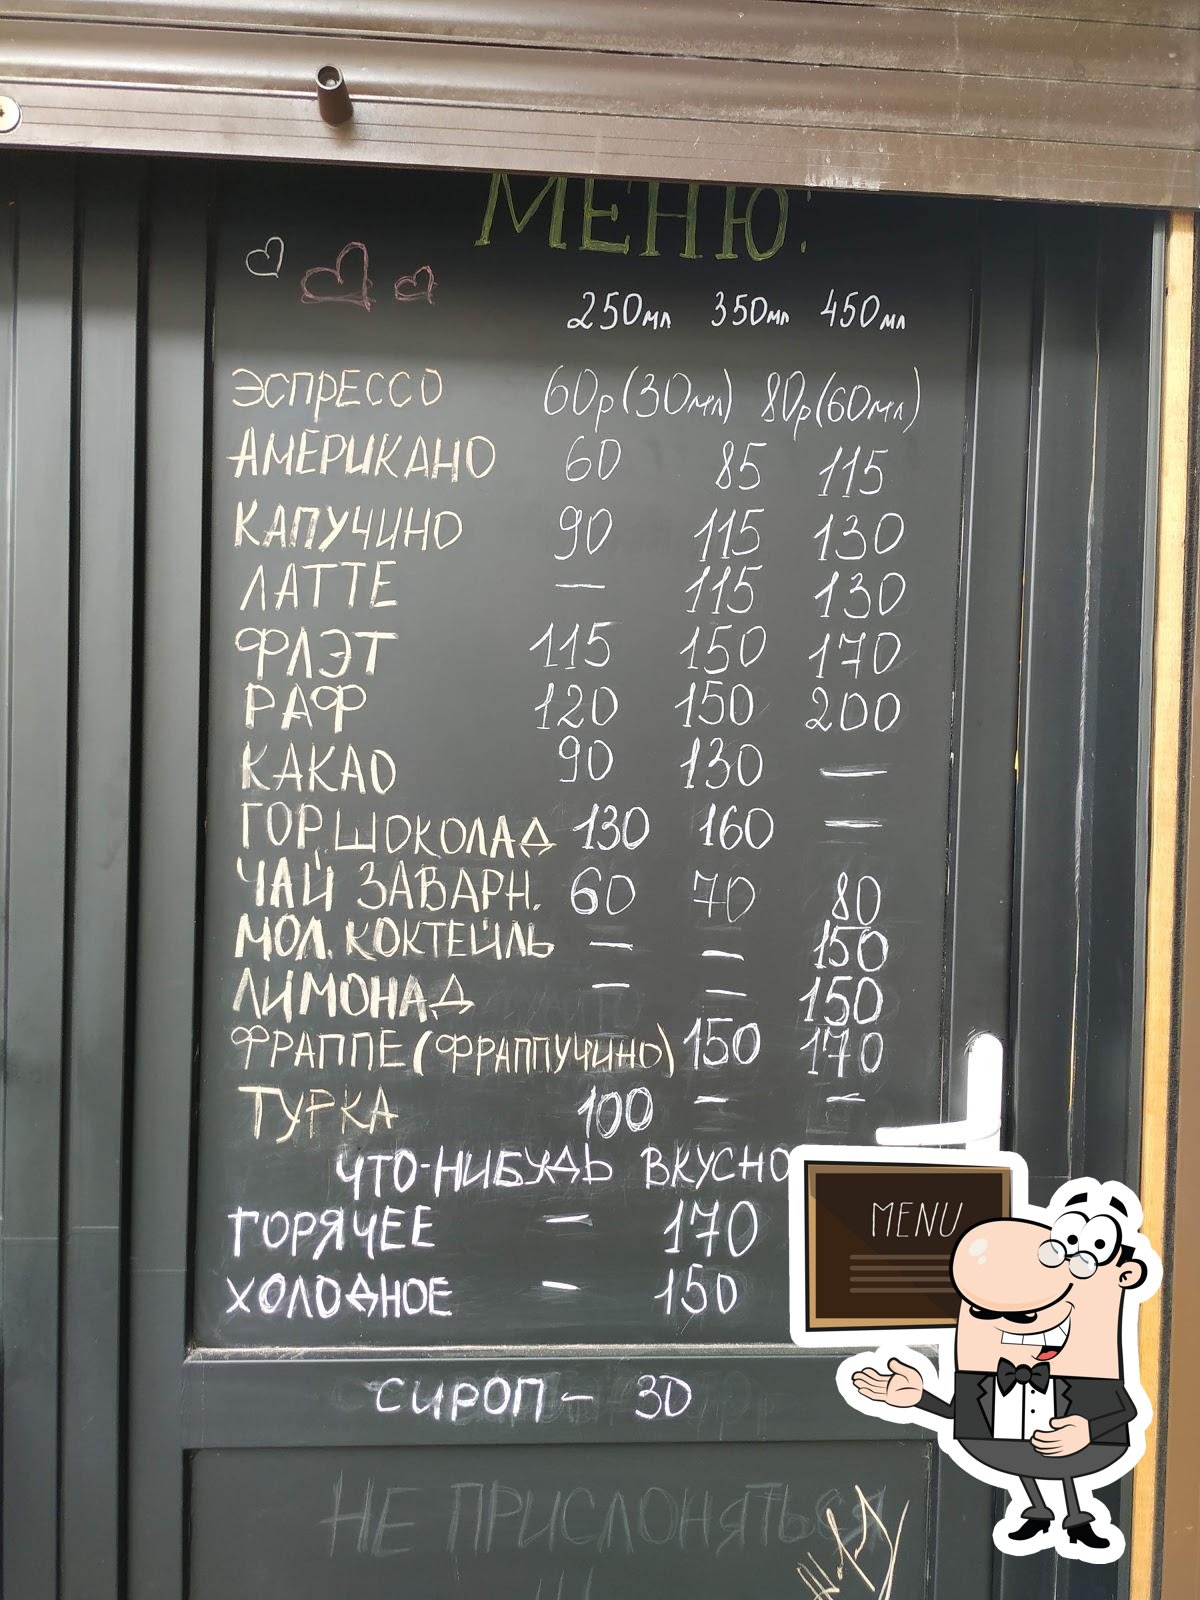 МЕНЮ:
250мл 350мл 450мл
ЭСПРЕССО 60р(30мл) 80р(60мл)
АМЕРИКАНО 60 85 115
КАПУЧИНО 90 115 130
ЛАТТЕ — 115 130
ФЛЭТ 115 150 170
РАФ 120 150 200
КАКАО 90 130 —
ГОР.ШОКОЛАД 130 160 —
ЧАЙ ЗАВАРН. 60 70 80
МОЛ. КОКТЕЙЛЬ — — 150
ЛИМОНАД — — 150
ФРАППЕ (ФРАППУЧИНО) 150 170
ТУРКА 100 — —
ЧТО-НИБУДЬ ВКУСНО
ГОРЯЧЕЕ — 170
ХОЛОДНОЕ — 150
СИРОП — 30
НЕ ПРИСЛОНЯТЬСЯ
MENU